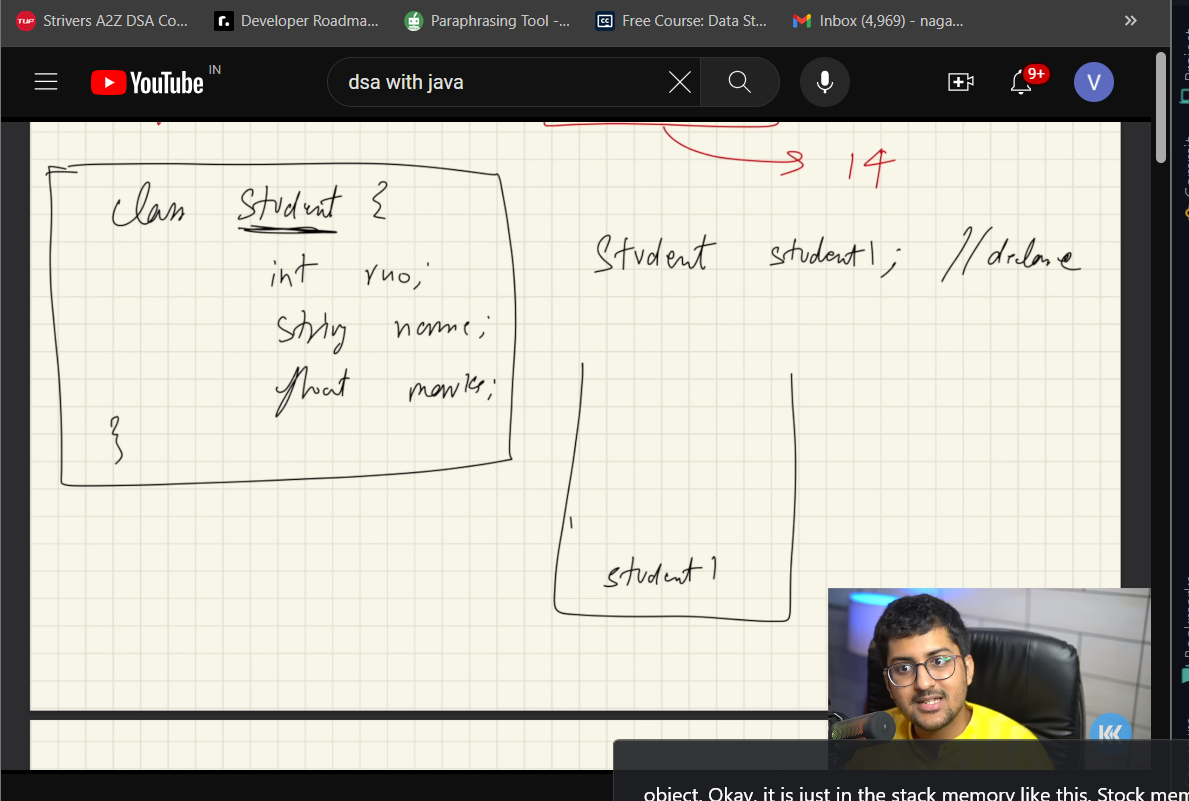 Strivers A2Z DSA Co... Developer Roadma... Paraphrasing Tool -... Free Course: Data St... Inbox (4,969) - naga...
YouTube IN dsa with java 9+ V
14
class Student {
Student student1; //declare
int rno;
string name;
float marks;
}
student1
object. Okay, it is just in the stack memory like this. Stock mem